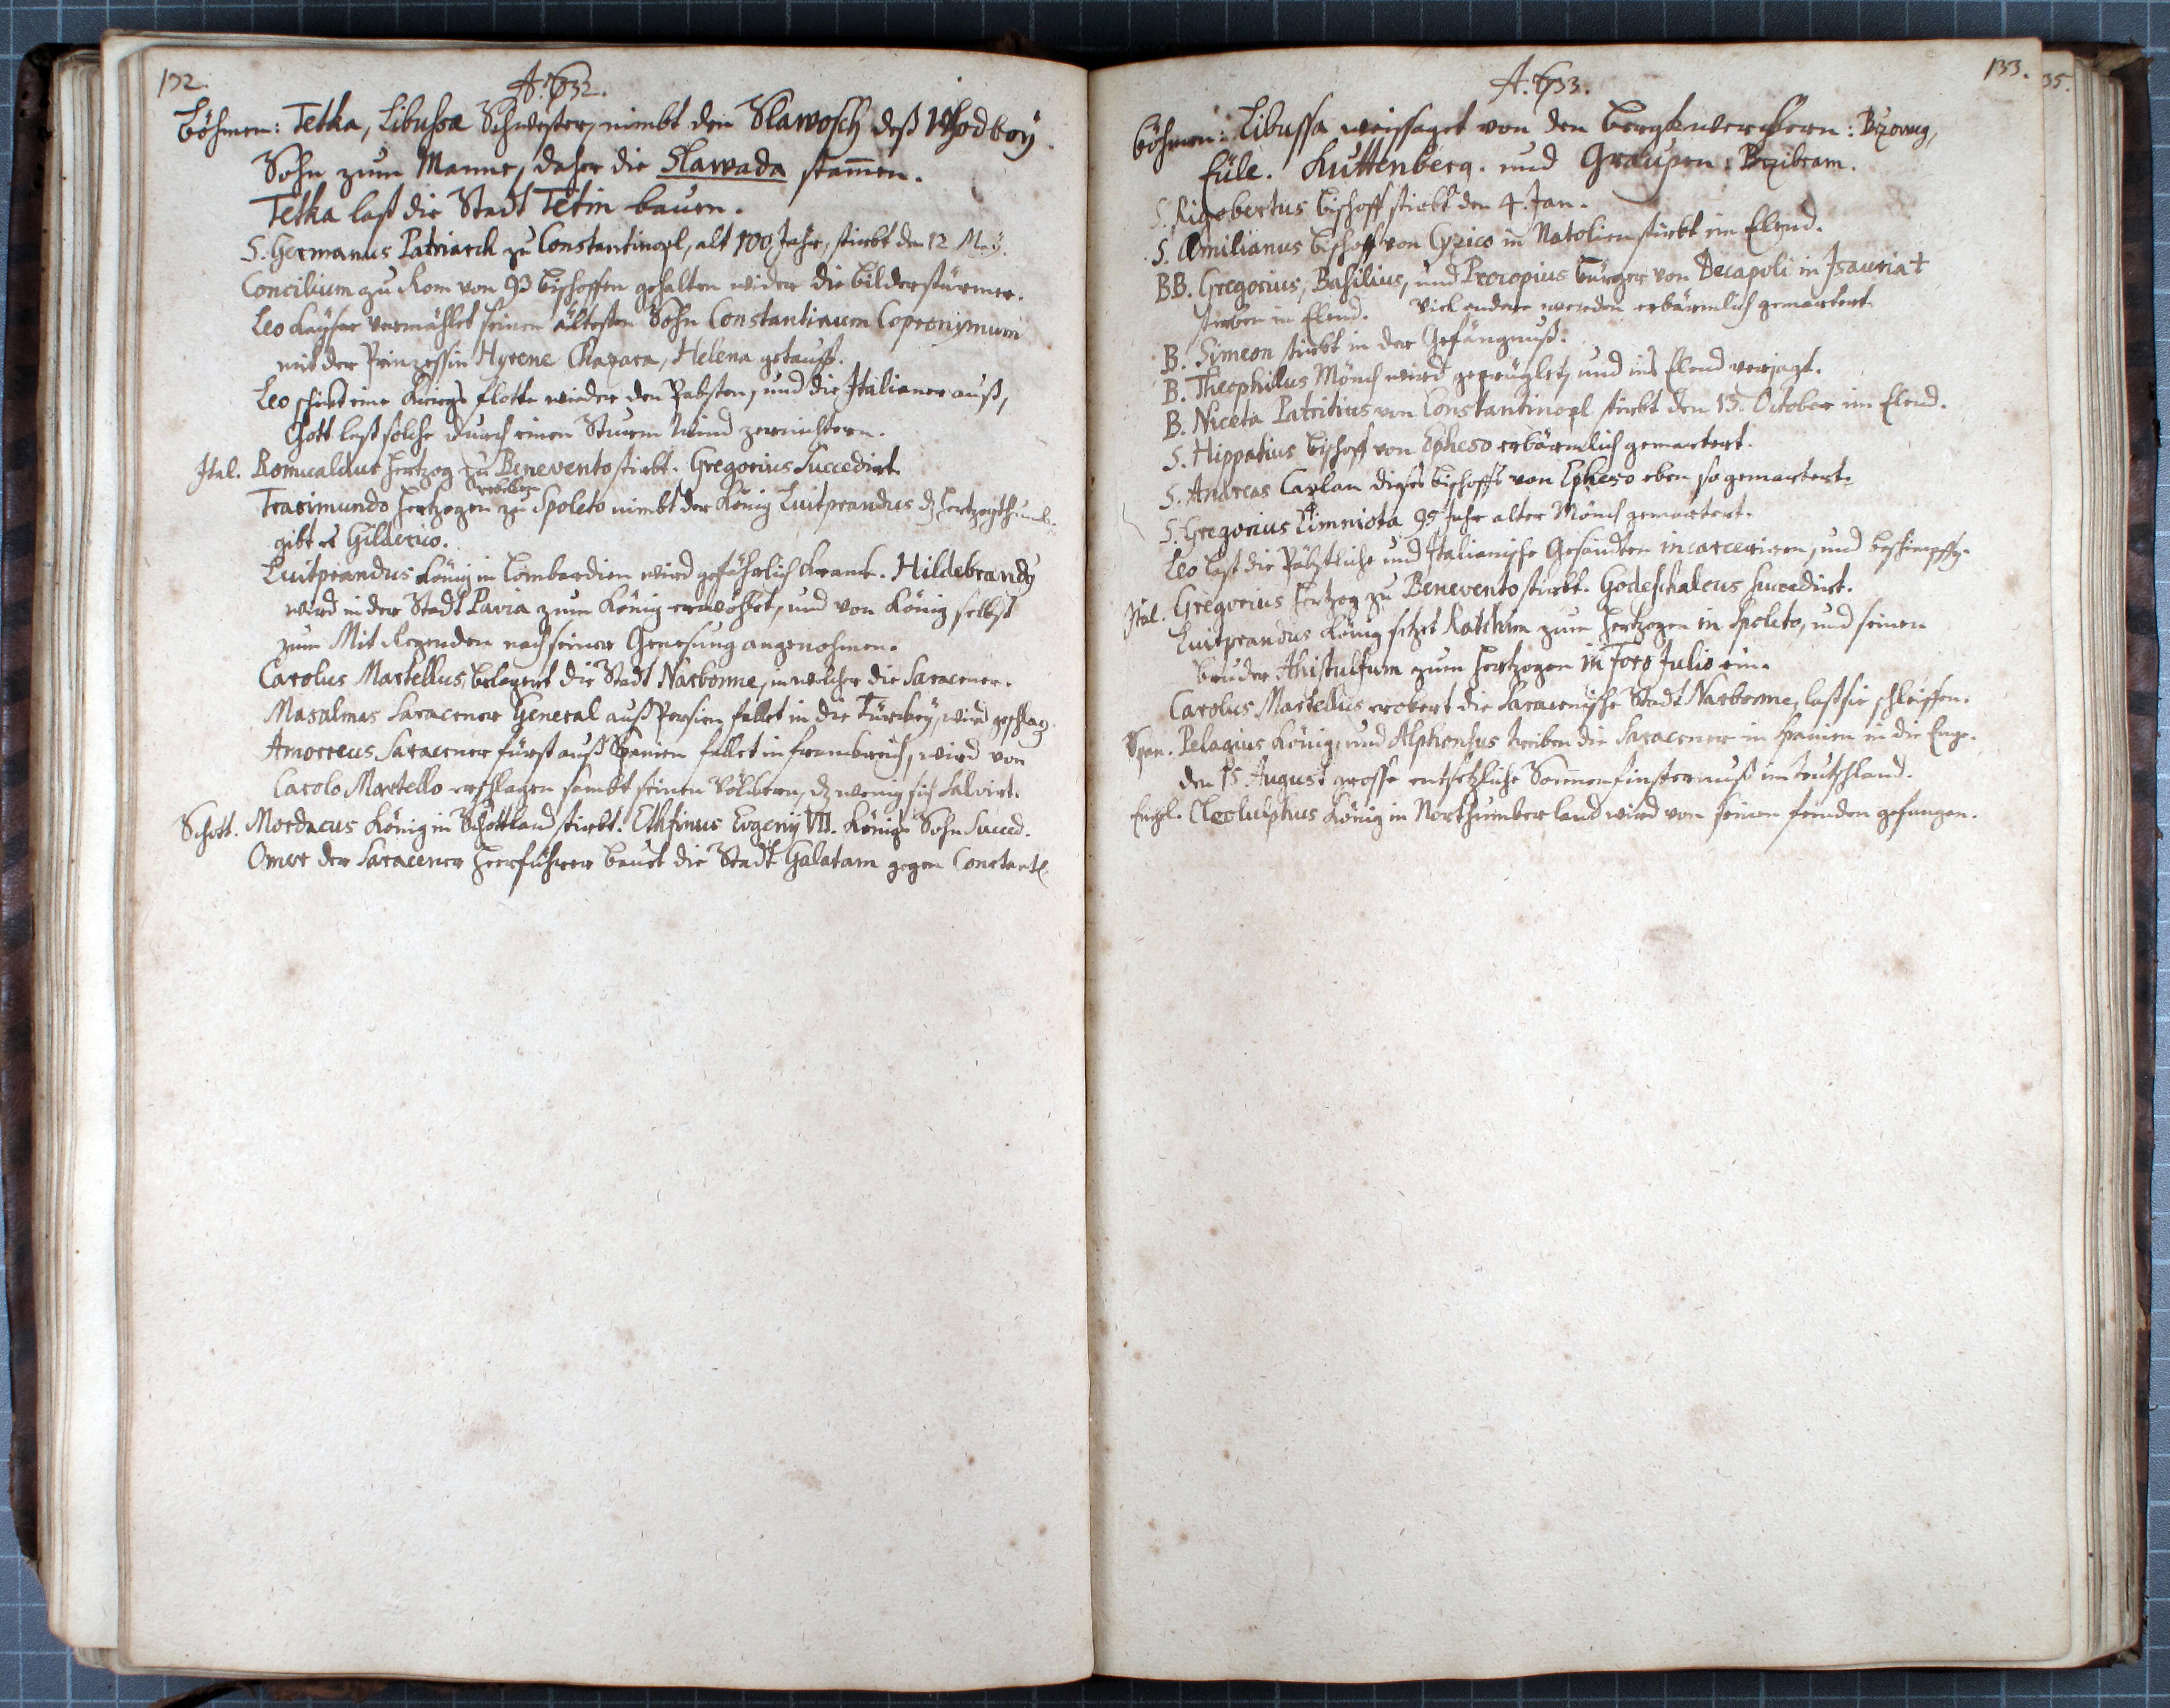 132.
A. 732.
Böhmen: Tetka, Libussæ Schwester, nimbt den Slawosch deß Whodboÿ
Sohn zum Manne, daher die Slawada stam̄en.
Tetka last die Stadt Tetin bauen.
S. Germanus Patriarch zu Constantinopl, alt 100 Jahr, stirbt den 12 Maÿ.
Concilium zu Rom von 93 Bischoffen gehalten wider die Bilderstürmer.
Leo Kaÿser vermählet seinen ältesten Sohn Constantinum Copronimum
mit der Prinzessin Hyrene Chazara, Helena getaufft.
Leo schickt eine Kriegs flotte wieder den Pabsten, und die Italianer auß,
Gott last solche durch einen Sturm Wind zernichten.
Ital. Romualdus Hertzog zu Benevento stirbt. Gregorius Succedirt.
Rebellen
Trasimundo Hertzogen zu Spoleto nimbt der König Luitprandus dz Hertzogthumb
gibt es Gilderico.
Luitprandus König in Lombardien wird gefährlich kranck. Hildebrandg
wird in der Stadt Pavia zum König erwöhlet, und von König selbst
zum Mit Regenden nach seiner Genesung angenohmen.
Carolus Martellus belagert die Stadt Narbonne, in welcher die Saracener.
Masalmas Saracener General auß Persien fallet in die Türckeÿ, wird geschlag
Amorreus Saracener fürst auß Spanien fallet in franckreich, wird von
Carolo Martello erschlagen sambt seinen Völckern, dz wenig sich Salvirt.
Schott. Mordacus König in Schottland stirbt. Ethfinus Evgenÿ VII. Königs Sohn Succed.
Omar der Saracener Heerführer bauet die Stadt Galatam gegen Constantl.
133.
35.
A. 733.
Böhmen: Libussa weissaget von den Bergkwerckern: Brzowÿ,
Eüle. Kuttenberg. und Graupen: Przibram.
S. Rigobertus Bischoff stirbt den 4. Jan.
S. Æmilianus Bischoff von Cyzico in Natolien stirbt im Elend.
BB. Gregorius, Basilius, und Procopius Bürger von Decapoli in Isauria †
sterben in Elend. Viel andere werden erbärmlich gemartert.
B. Simeon stirbt in der Gefängnuß.
B. Theophilus Mönch wird geprüglet, und ins Elend verjagt.
B. Niceta Patritius von Constantinopl stirbt den 13. October im Elend.
S. Hippatius Bischoff von Epheso erbärmlich gemartert.
S. Andreas Caplan dieses Bischoffs von Epheso eben so gemartert.
S. Gregorius Limniota 95 Jahr alter Mönch gemartert.
Leo last die Päbstliche und Italianische Gesandten incarceriren, und beschimpffg.
Ital. Gregorius Hertzog zu Benevento stirbt. Godeschalcus succedirt.
Luitprandus König setzet Ratchim zum Hertzogen in Spoleto, und seinen
bruder Ahistulfum zum Hertzogen in Foro Julio ein.
Carolus Martellus erobert die Saracenische Stadt Narbonne, last sie schleiffen.
Span. Pelagius König, und Alphonsus treiben die Saracener in Spanien in die Enge.
den 15 August grosse entsetzliche Sonnenfinsternuß im Teutschland.
Engl. Ceolulphus König in Northumberland wird von seinen feinden gefangen.